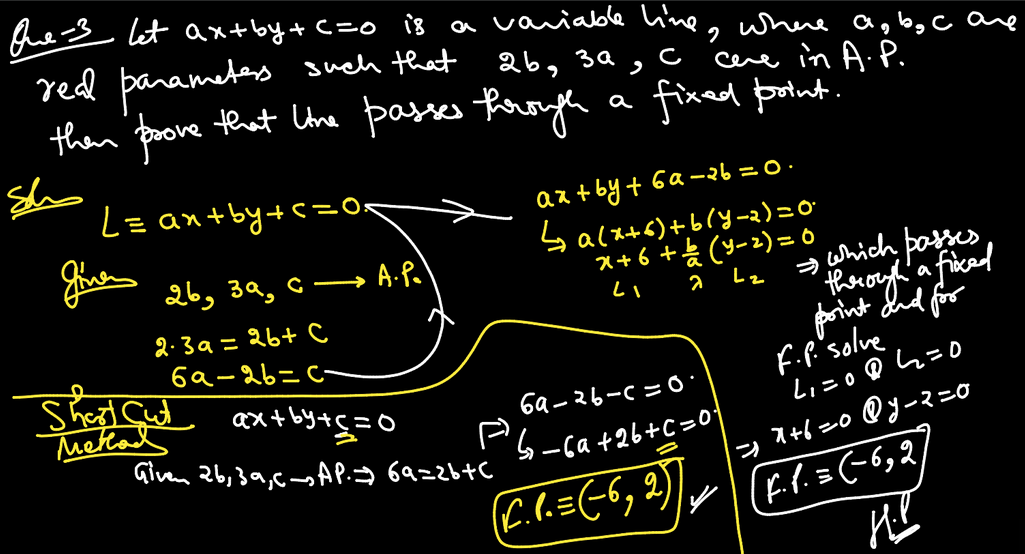 Que-3 Let ax+by+c=0 is a variable line, where a, b, c are
real parameters such that 2b, 3a, c are in A.P.
then prove that line passes through a fixed point.
Soln
L≡ ax+by+c=0.
Given
2b, 3a, c → A.P.
2·3a = 2b+c
6a-2b=c
ax+by+6a-2b=0.
↳ a(x+6)+b(y-2)=0
x+6+b/a(y-2)=0
L1 λ L2
⇒ which passes
through a fixed
point and for
F.P. solve
L1=0 @ L2=0
⇒ x+6=0 @ y-2=0
F.P.≡(-6,2)
H.P
Short Cut
Method
ax+by+c=0
Given 2b,3a,c→AP.⇒ 6a=2b+c
6a-2b-c=0.
↳ -6a+2b+c=0
F.P.≡(-6,2) ✓